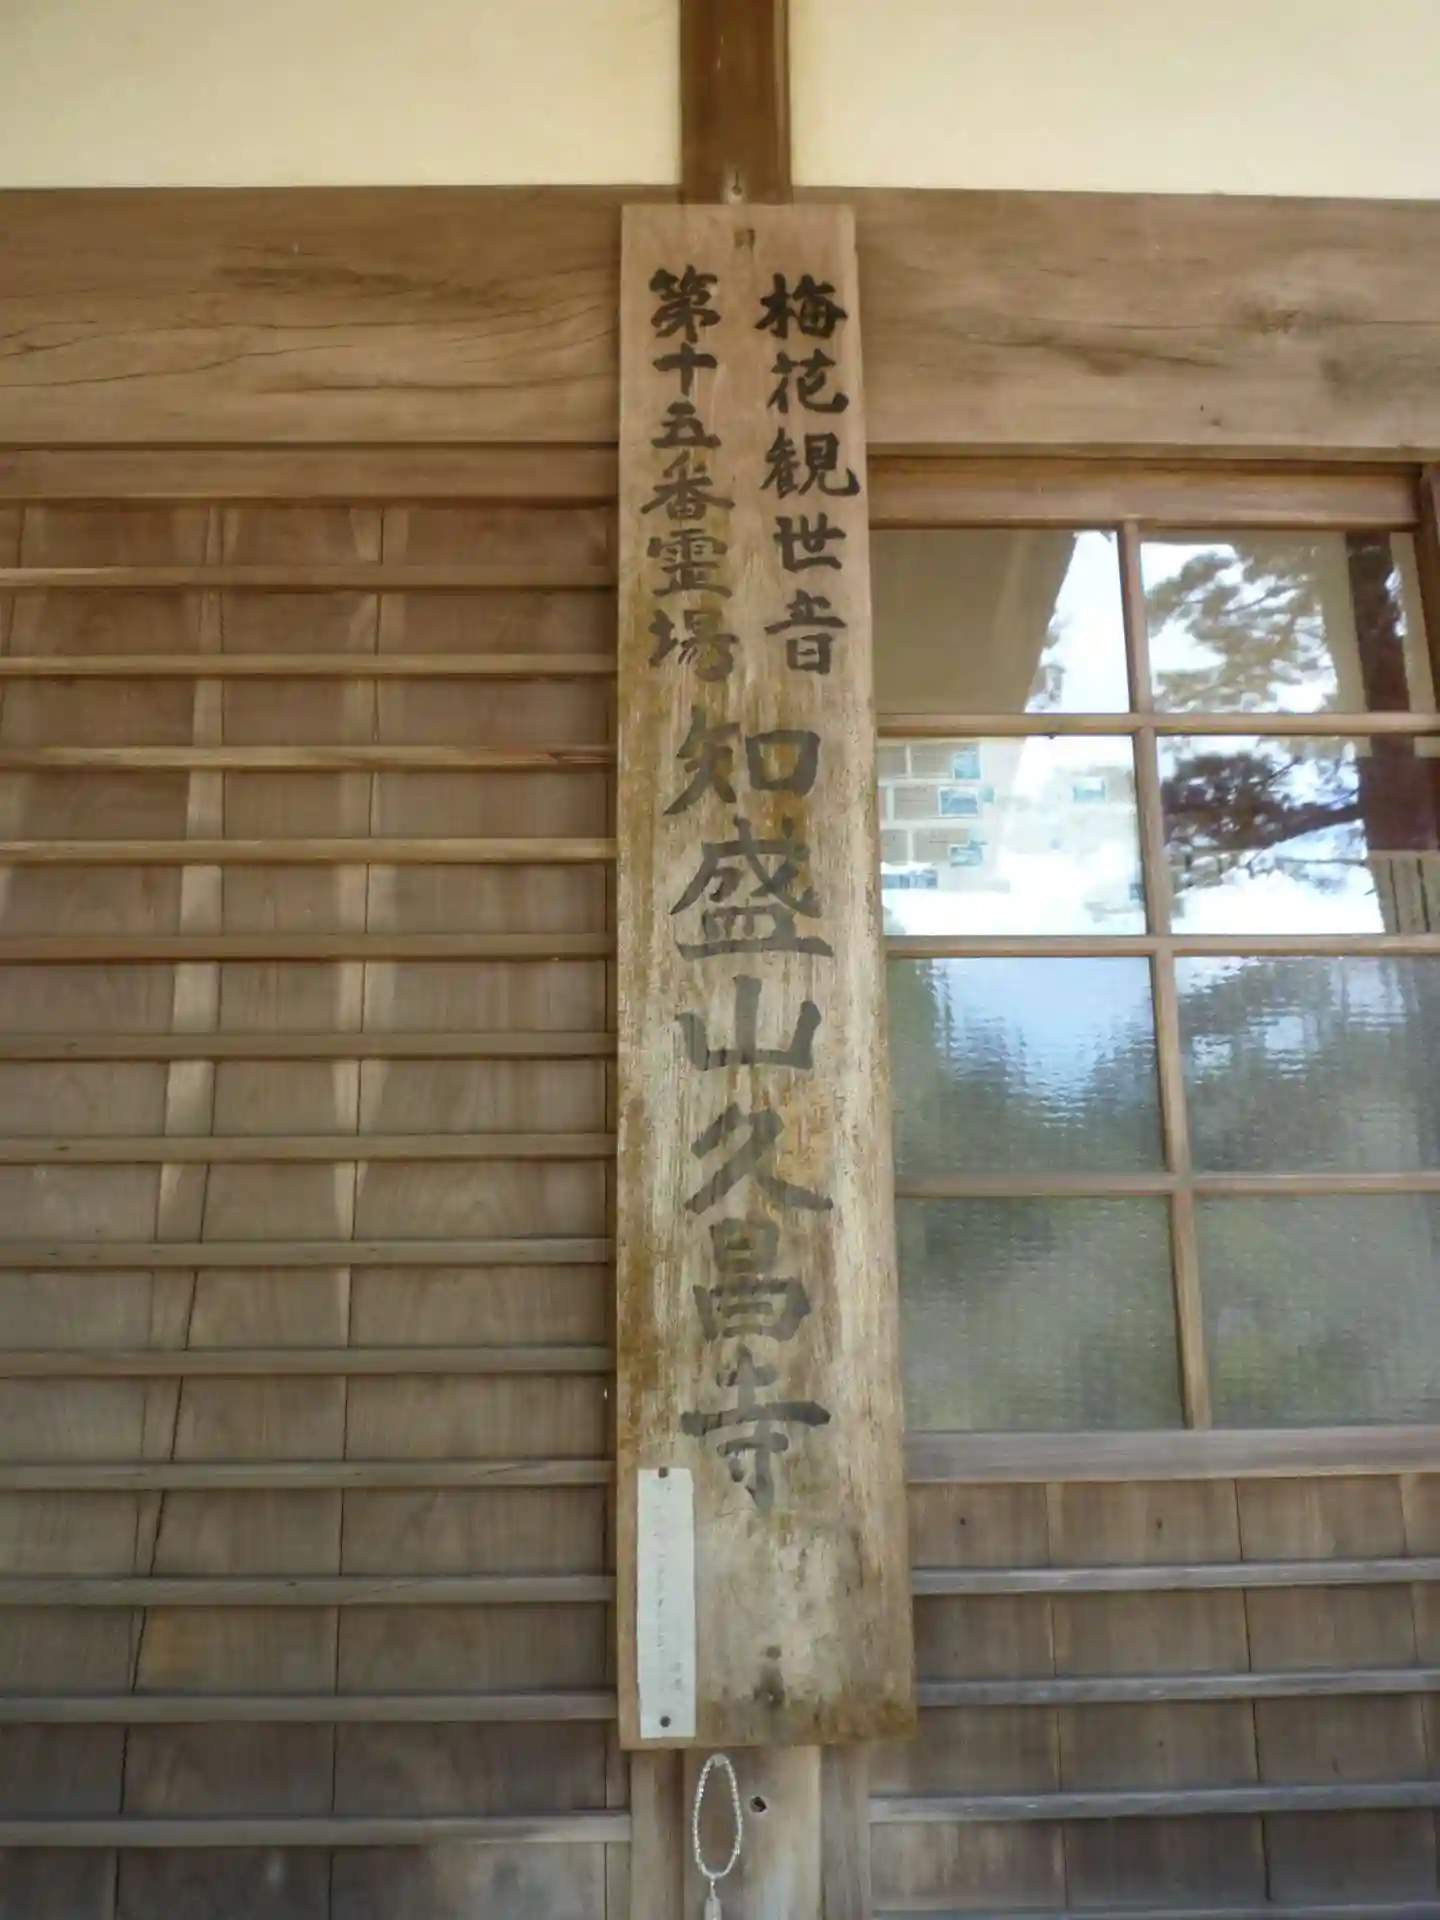 梅花観世音
第十五番霊場
知盛山久昌寺